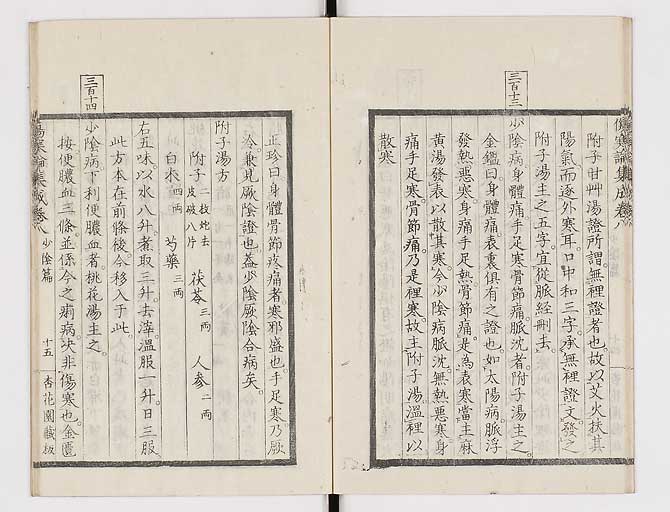 傷寒論集成卷八
附子甘艸湯證所謂無裡證者也故以艾火扶其
陽氣而逐外寒耳口中和三字承無裡證文發之
附子湯主之五字宜從脈經刪去
三百十三
少陰病身體痛手足寒骨節痛脈沈者附子湯主之
金鑑曰身體痛表裏俱有之證也如太陽病脈浮
發熱惡寒身痛手足熱骨節痛是為表寒當主麻
黃湯發表以散其寒今少陰病脈沈無熱惡寒身
痛手足寒骨節痛乃是裡寒故主附子湯溫裡以
散寒
正珍曰身體骨節疼痛者寒邪盛也手足寒乃厥
冷兼見厥陰證也蓋少陰厥陰合病矣
附子湯方
附子二枚炮去皮破八片 茯苓三兩 人參二兩
白朮四兩 芍藥三兩
右五味以水八升煮取三升去滓溫服一升日三服
此方本在前條後今移入于此
三百十四
少陰病下利便膿血者桃花湯主之
按便膿血三條並係今之痢病決非傷寒也金匱
傷寒論集成卷八 少陰篇 十五 杏花園藏板